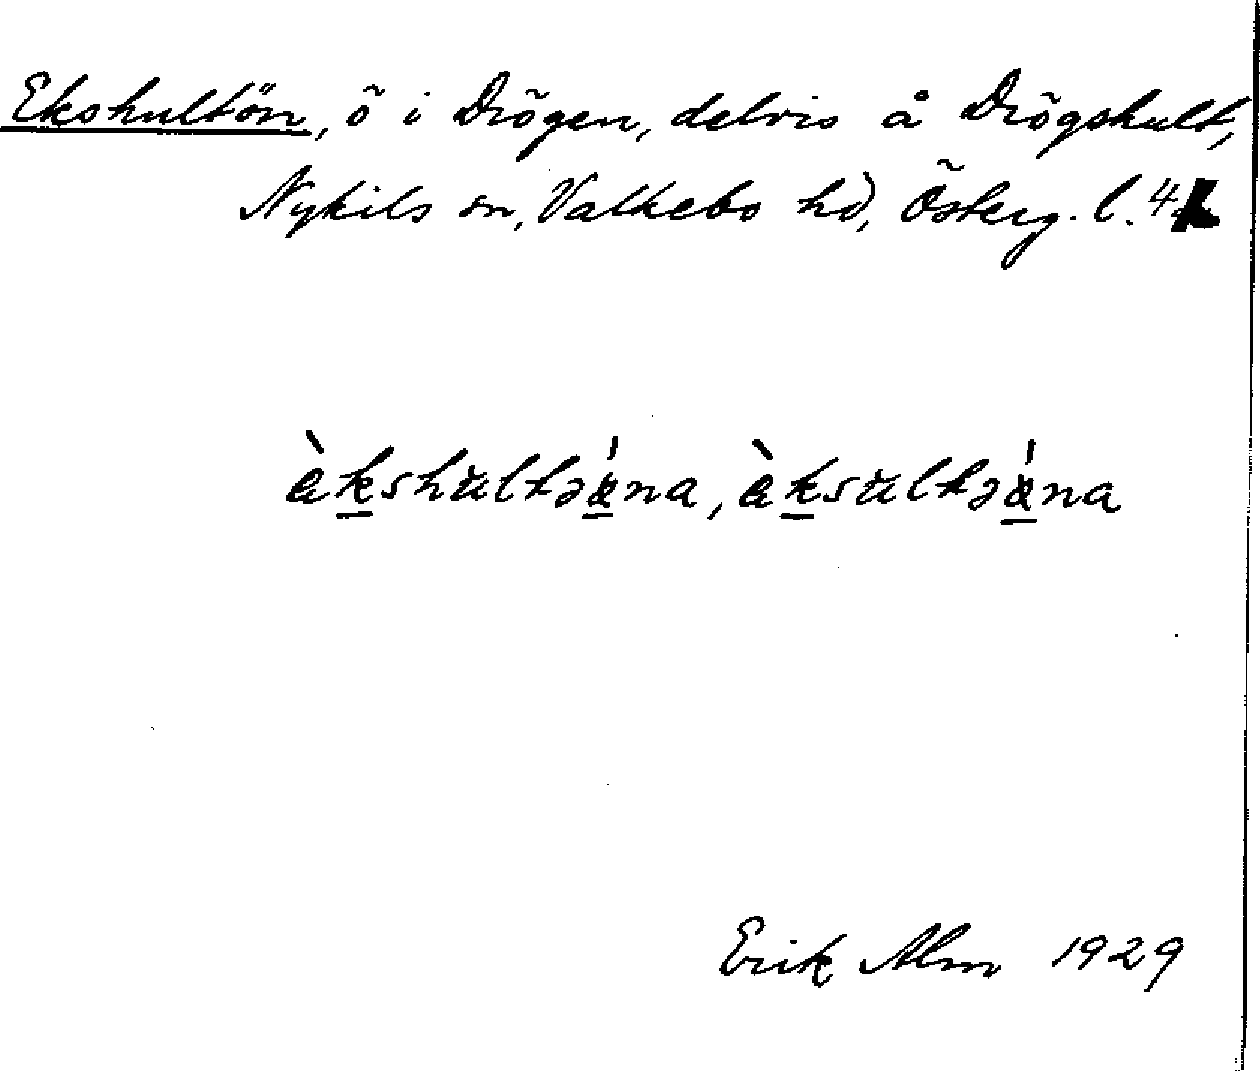 Ekshultön, ö i Drögen, delvis å Drögshult,
Nykils sn, Valkebo hd, Österg. l. 4
èkshultəǿna, èksultəǿna
Erik Alm 1929